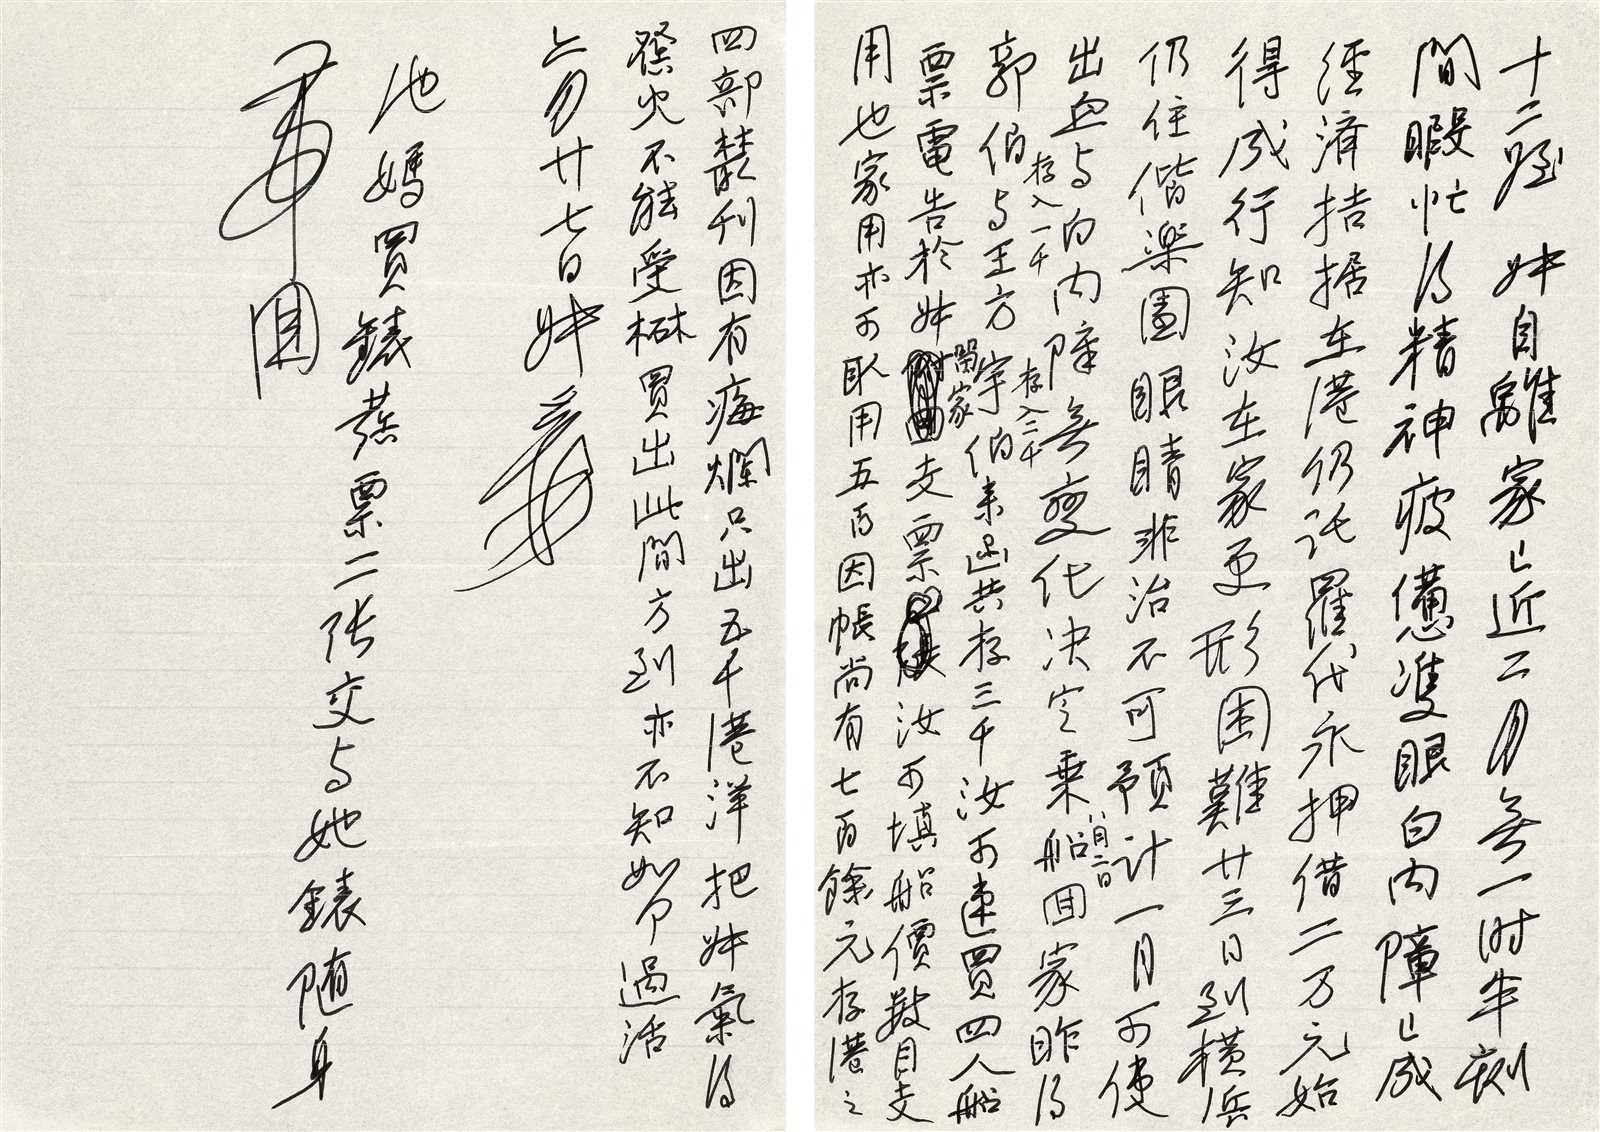 十二姪 妹自離家已近二月無一时半刻
間暇忙得精神疲憊雙眼白内障已成
經濟拮据在港仍託羅代永押借二万元始
得成行知汝在家更形困難廿三日到橫浜
仍住偕楽園眼睛非治不可預計一月可使
出血与白内障無變化决定八月二日乗船囬家昨得
郭伯存入一千与王方宇伯存入二千来函共存三千汝可速買四人船
票電告於妹開家支票汝可填船價数目支
用也家用亦可取用五百因帳尚有七百餘元存港之
四部叢刊因有霉爛只出五千港洋把妹氣得
發火不能受
買出此間方到亦不知如何過活
七月廿七日妹爰
池媽買錶蕊票二张交与她錶随身
帶囬